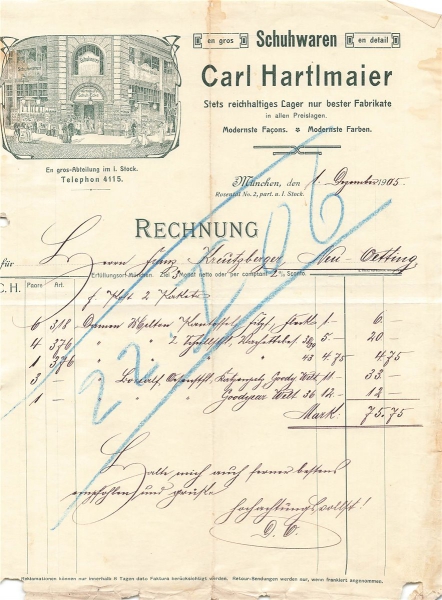 en gros Schuhwaren en detail
Carl Hartlmaier
Stets reichhaltiges Lager nur bester Fabrikate
in allen Preislagen.
Modernste Façons. Modernste Farben.
En gros-Abteilung im I. Stock.
Telephon 4115.
München, den 1. Dezember 1905.
Rosental No. 2, part. u. I. Stock.
RECHNUNG
für Herrn Franz Kreutzberger Neu-Oetting
Erfüllungsort München. Ziel 3 Monat netto oder per comptant 2% Sconto.
C. H. Paare Art.
p. Post 2 Pakete
6 318 Damen 1 — 6. —
4 376 " 5 — 20 —
1 376 " " 43 4.75 4.75
3 — " Goody Welt 11 33 —
1 — " " Goodyear Welt 36 12 — 12 —
Mark 75.75
22 / 1 06
Halte mich auch ferner bestens
empfohlen und grüße
hochachtungsvollst!
D. O.
Reklamationen können nur innerhalb 8 Tagen dato Faktura berücksichtigt werden. Retour-Sendungen werden nur, wenn frankiert angenommen.